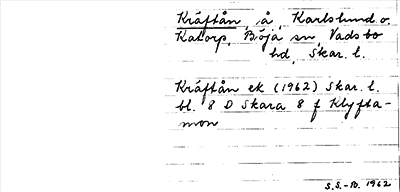 Kräftån, å, Karlslund o.
Katorp, Böja sn, Vadsbo
hd, Skar. l.
Kräftån ek (1962) Skar. l.
bl. 8 D Skara 8 f Klyfta-
mon
S.S.-B. 1962